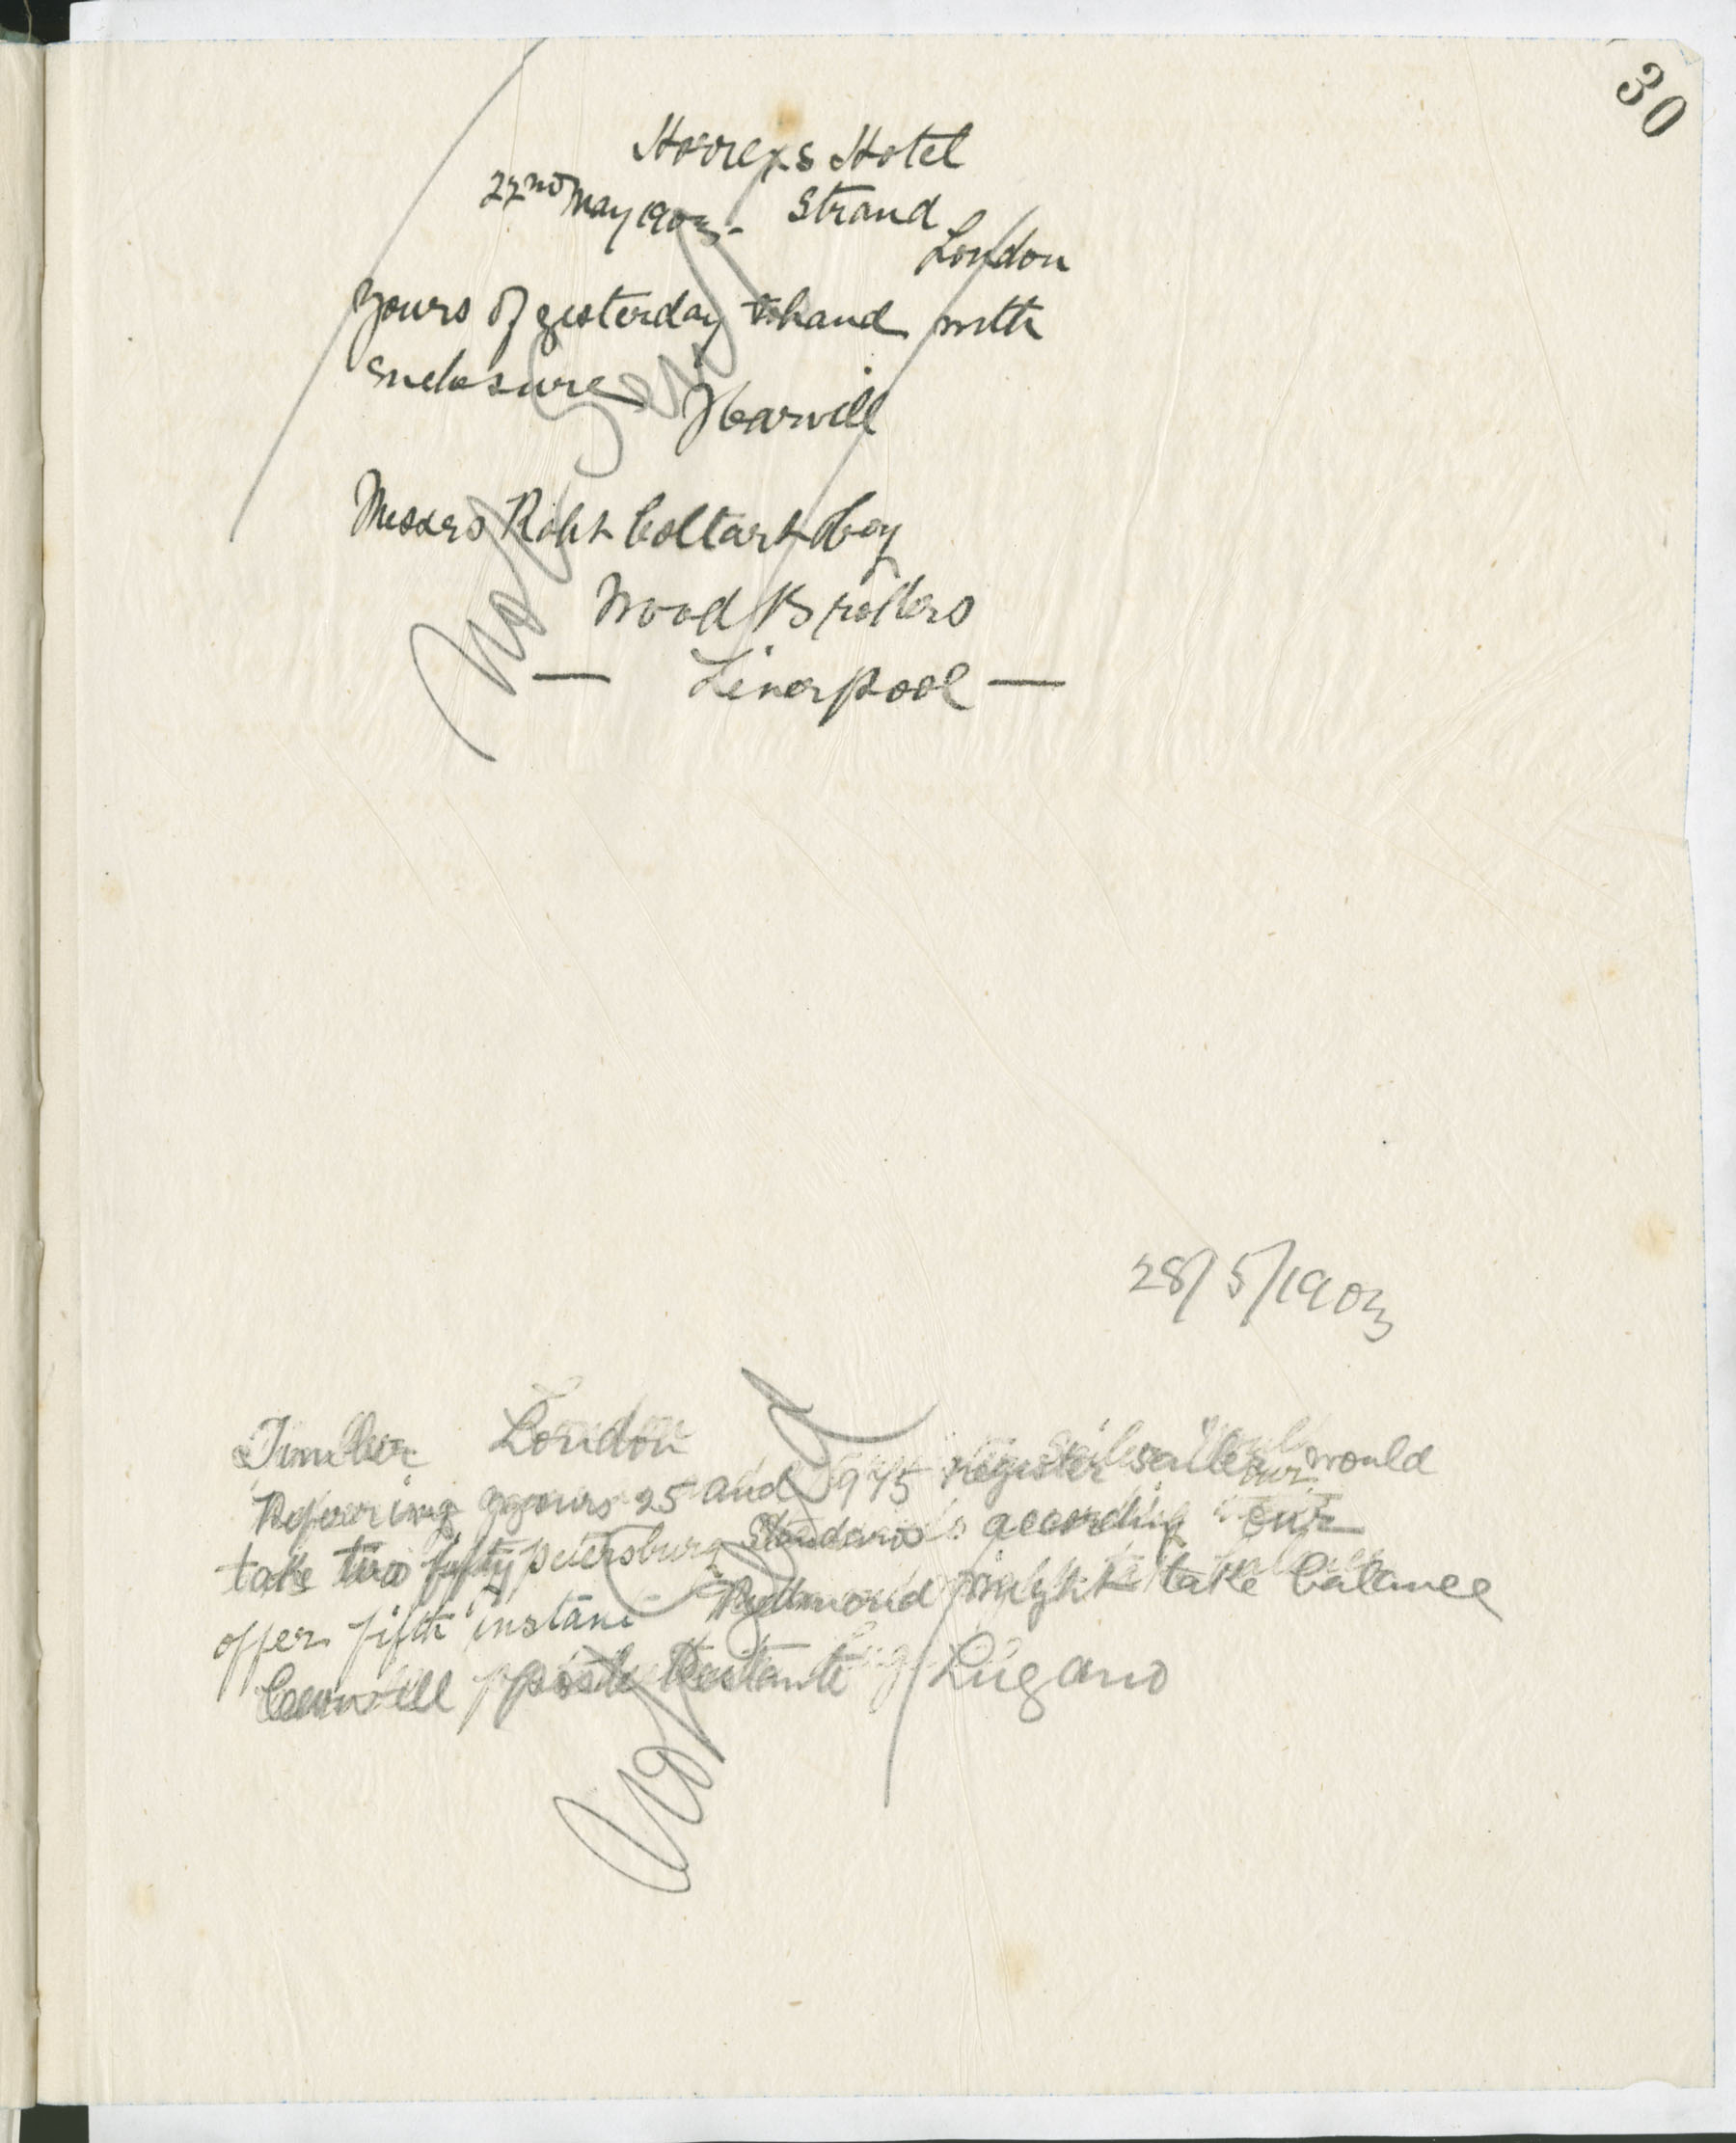 30
Hotel
22nd May 1903. Strand
London
Yours of yesterday to hand with
Enclosure
J Carvill
Messrs Robt Coltart & Coy
Wood Brokers
— Liverpool —
Not Sent
28/5/1903
Timber London
Refering yours 25 and register sailer would
take two fifty petersburg Standards according our
offer fifth instant might take balance
Carvill poste Restante Lugano
Not Sent